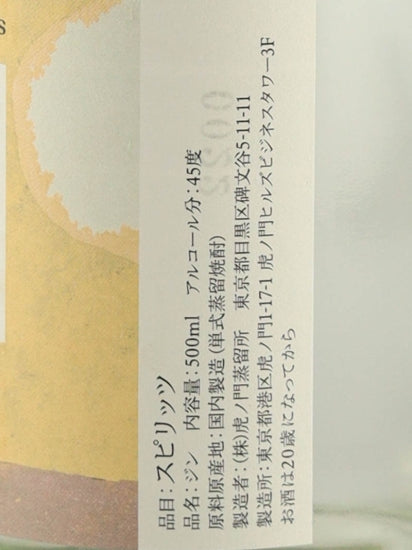 品目：スピリッツ
品名：ジン　内容量：500ml　アルコール分：45度
原料原産地：国内製造（単式蒸留焼酎）
製造者：（株）虎ノ門蒸留所　東京都目黒区碑文谷5-11-11
製造所：東京都港区虎ノ門1-17-1 虎ノ門ヒルズビジネスタワー3F
お酒は20歳になってから